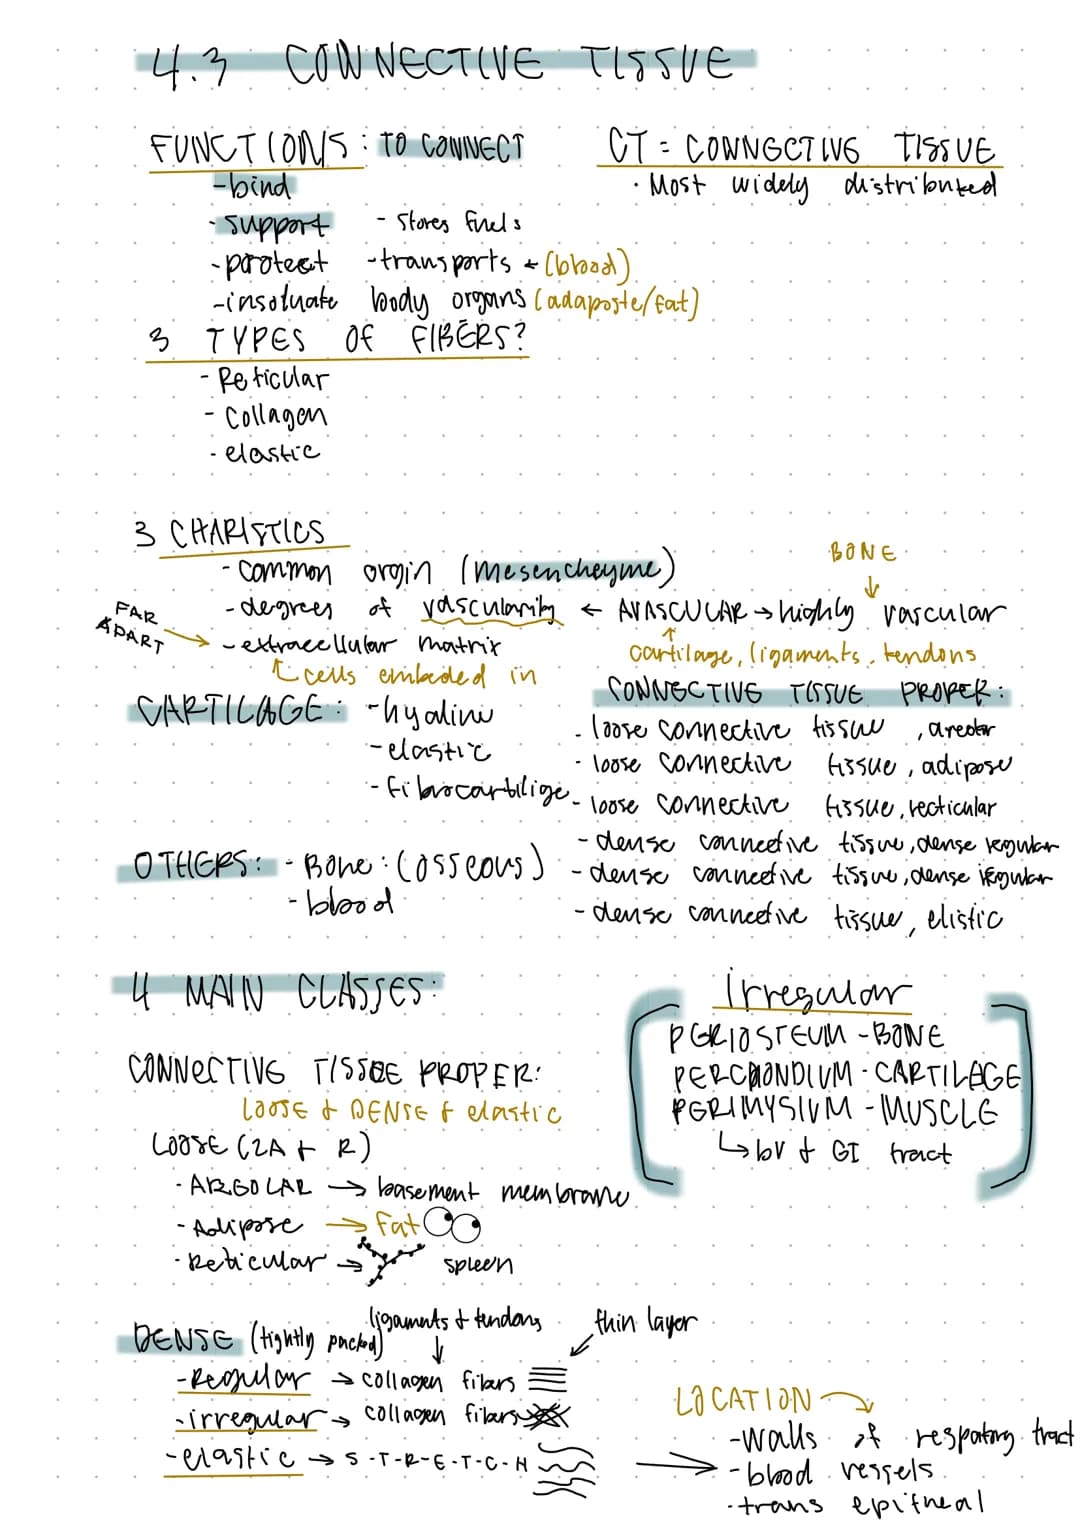 4.3 CONNECTIVE TISSUE
FUNCTION/S : TO CONNECT
-bind
- support - stores fuels
- protect - transports ← (blood)
- insoluate body organs (adaposte/fat)
CT = CONNECTIVE TISSUE
· Most widely distributed
3 TYPES OF FIBERS?
- Reticular
- Collagen
- elastic
3 CHARISTICS
- common orgin (mesencheyme)
- degrees of vascularity ← AVASCULAR → highly vascular
BONE
↓
cartilage, ligaments, tendons
FAR APART → - extracellular matrix
cells embeded in
CARTILAGE: - hyaline
- elastic
- fibrocartilige
CONNECTIVE TISSUE PROPER:
- loose connective tissue, areolar
- loose connective tissue, adipose
- loose connective tissue, recticular
- dense connective tissue, dense regular
- dense connective tissue, dense irregular
- dense connective tissue, elistic
OTHERS: - Bone: (osseous)
- blood
4 MAIN CLASSES:
CONNECTIVE TISSUE PROPER:
LOOSE + DENSE + elastic
LOOSE (2A + R)
· AREOLAR → basement membrane
· Adipose → Fat
· Reticular → spleen
irregular
PERIOSTEUM - BONE
PERCHONDIUM - CARTILAGE
PERIMYSIUM - MUSCLE
↳ bv + GI tract
DENSE (tightly packed)
ligaments & tendons
thin layer
- Regular → collagen fibers
- irregular → collagen fibers
- elastic → S-T-R-E-T-C-H
LOCATION
- walls of respatory tract
- blood vessels
- trans epitheal